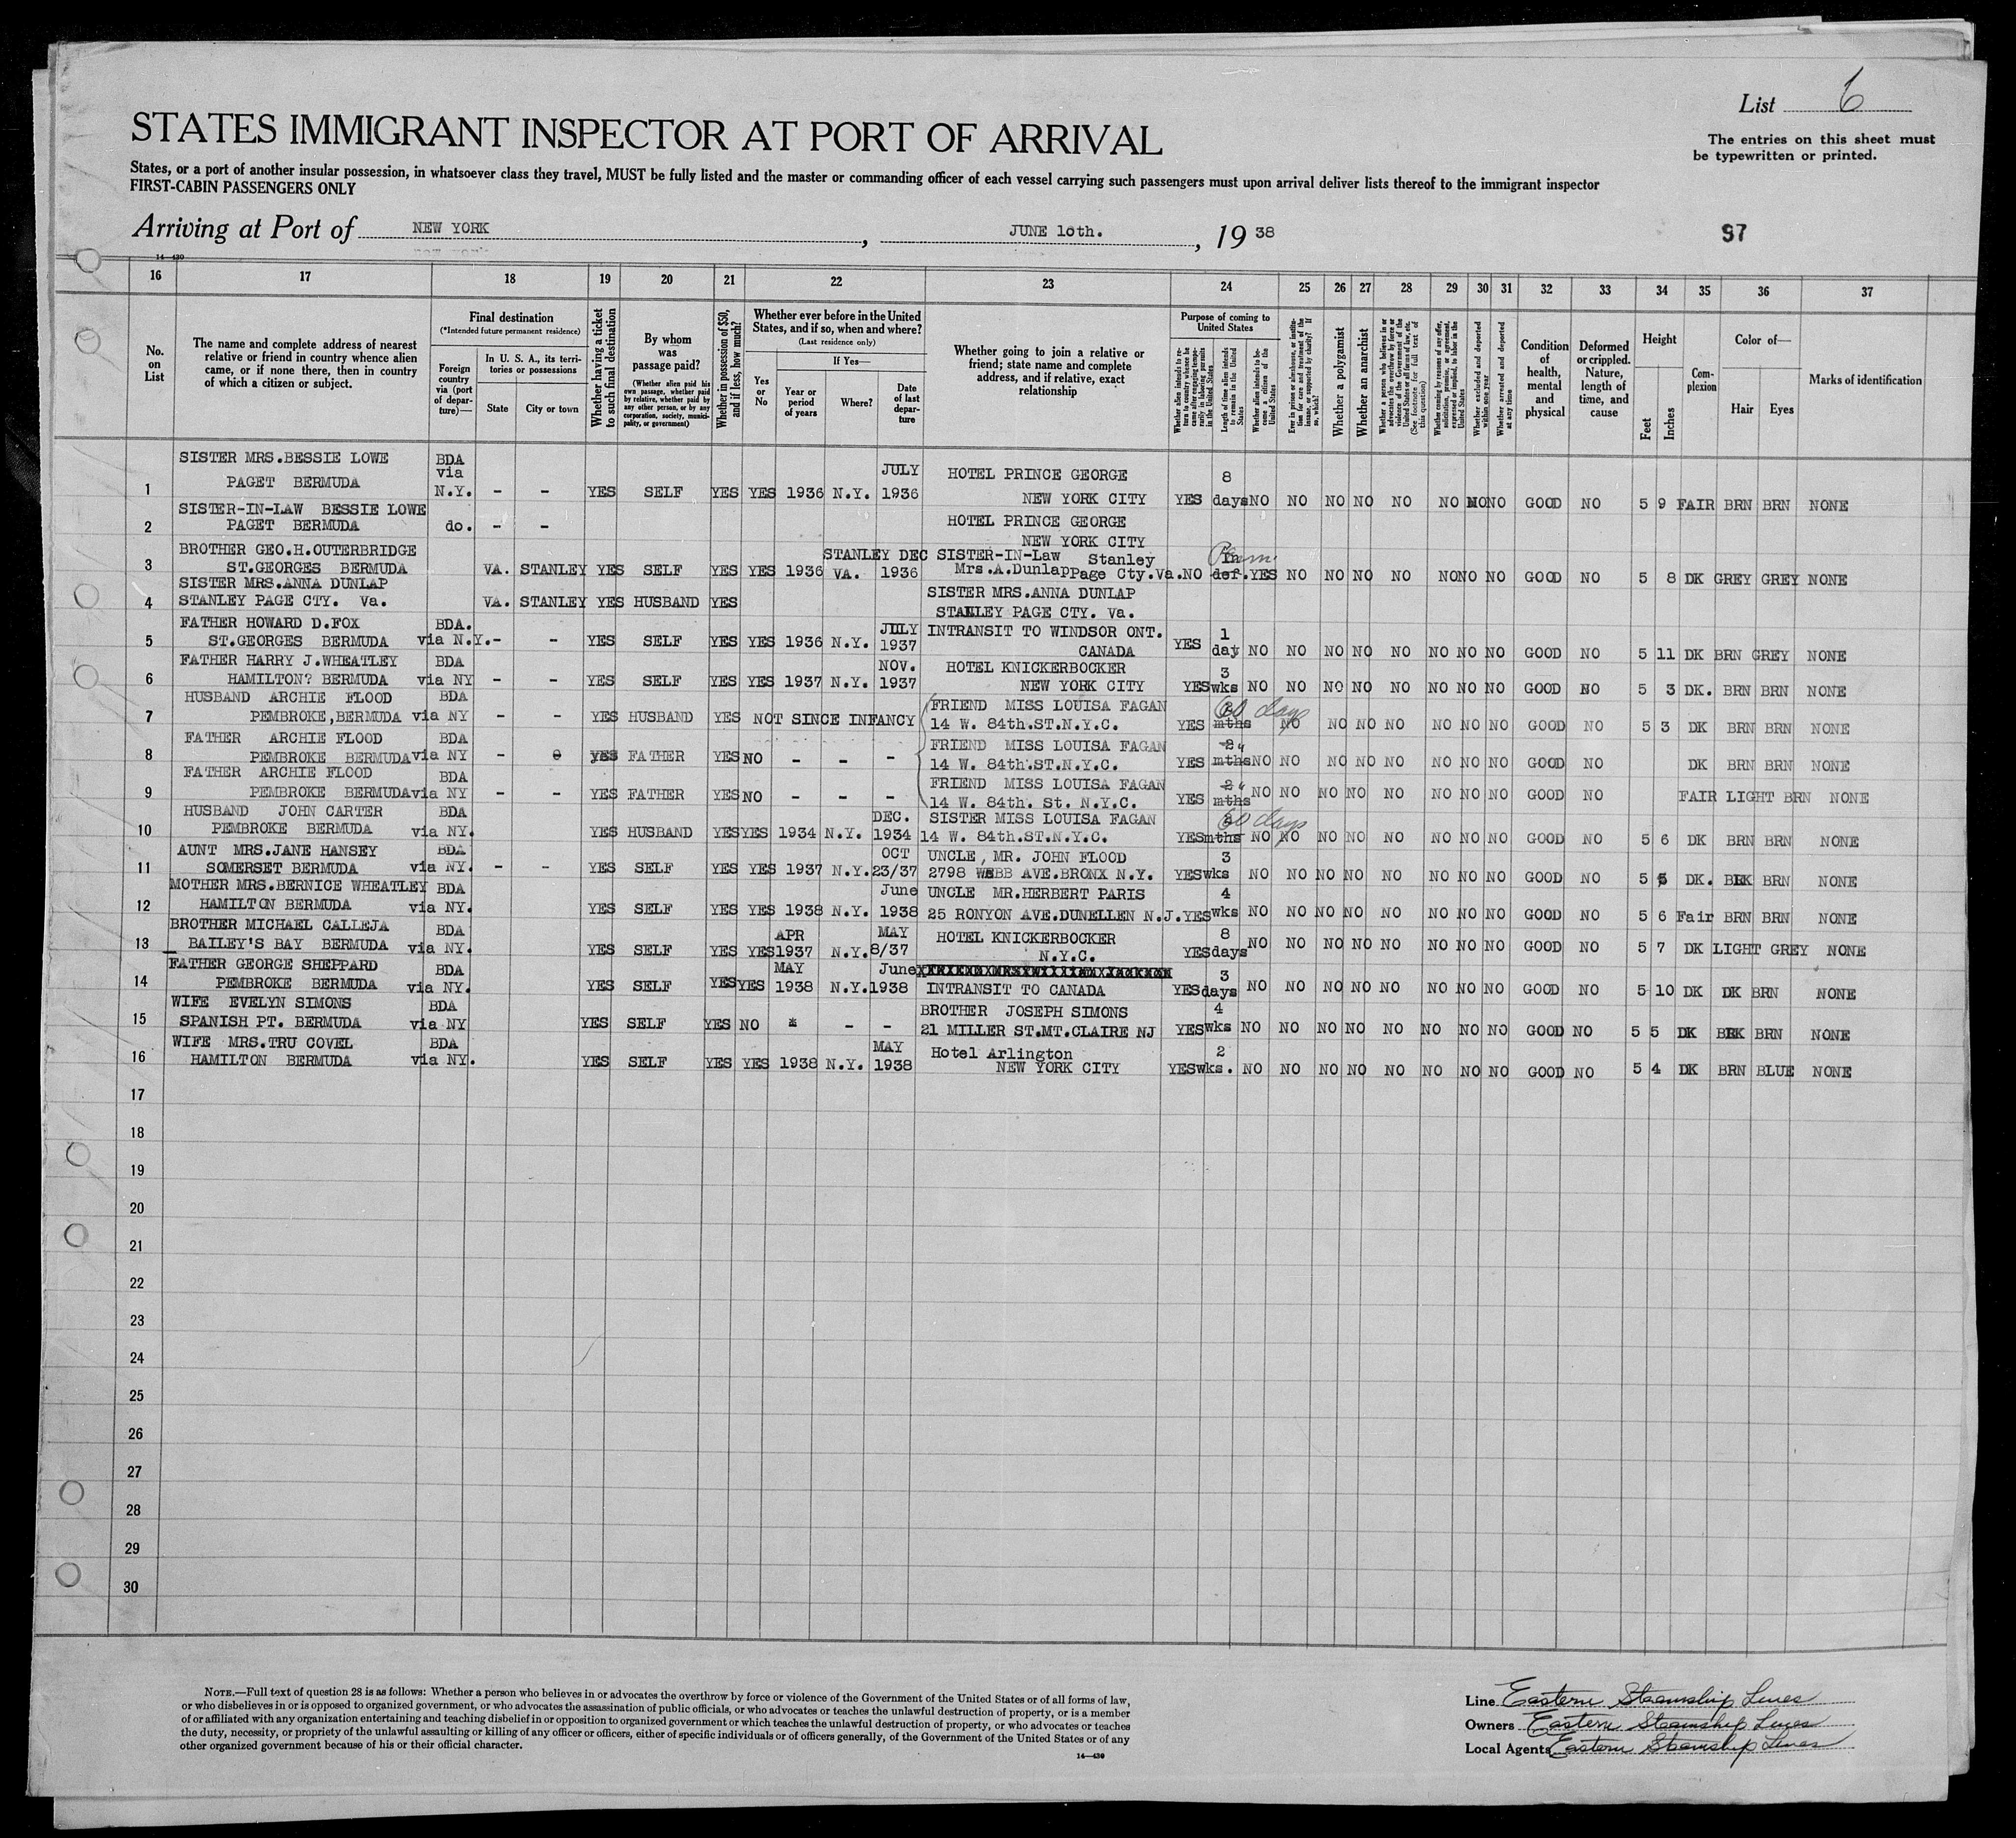 List 6
STATES IMMIGRANT INSPECTOR AT PORT OF ARRIVAL
The entries on this sheet must
be typewritten or printed.
States, or a port of another insular possession, in whatsoever class they travel, MUST be fully listed and the master or commanding officer of each vessel carrying such passengers must upon arrival deliver lists thereof to the immigrant inspector
FIRST-CABIN PASSENGERS ONLY
Arriving at Port of NEW YORK, JUNE 10th., 19 38
97
14—430
16 17 18 19 20 21 22 23 24 25 26 27 28 29 30 31 32 33 34 35 36 37
No. on List
The name and complete address of nearest relative or friend in country whence alien came, or if none there, then in country of which a citizen or subject.
Final destination
(*Intended future permanent residence)
Foreign country via (port of departure)—
In U. S. A., its territories or possessions
State
City or town
Whether having a ticket to such final destination
By whom was passage paid?
(Whether alien paid his own passage, whether paid by relative, whether paid by any other person, or by any corporation, society, municipality, or government)
Whether in possession of $50, and if less, how much?
Whether ever before in the United States, and if so, when and where?
(Last residence only)
If Yes—
Yes or No
Year or period of years
Where?
Date of last departure
Whether going to join a relative or friend; state name and complete address, and if relative, exact relationship
Purpose of coming to United States
Whether alien intends to return to country whence he came after engaging temporarily in laboring pursuits in the United States
Length of time alien intends to remain in the United States
Whether alien intends to become a citizen of the United States
Ever in prison or almshouse, or institution for care and treatment of the insane, or supported by charity? If so, which?
Whether a polygamist
Whether an anarchist
Whether a person who believes in or advocates the overthrow by force or violence of the Government of the United States or all forms of law, etc. (See footnote for full text of this question)
Whether coming by reasons of any offer, solicitation, promise, or agreement, expressed or implied, to labor in the United States
Whether excluded and deported within one year
Whether arrested and deported at any time
Condition of health, mental and physical
Deformed or crippled. Nature, length of time, and cause
Height
Feet
Inches
Complexion
Color of—
Hair
Eyes
Marks of identification
SISTER MRS.BESSIE LOWE BDA via JULY HOTEL PRINCE GEORGE 8
1 PAGET BERMUDA N.Y. - - YES SELF YES YES 1936 N.Y. 1936 NEW YORK CITY YES days NO NO NO NO NO NO NO NO GOOD NO 5 9 FAIR BRN BRN NONE
SISTER-IN-LAW BESSIE LOWE HOTEL PRINCE GEORGE
2 PAGET BERMUDA do. - - NEW YORK CITY
BROTHER GEO.H.OUTERBRIDGE STANLEY DEC SISTER-IN-Law Stanley Perm
3 ST.GEORGES BERMUDA VA. STANLEY YES SELF YES YES 1936 VA. 1936 Mrs.A.Dunlap Page Cty.Va. NO def. YES NO NO NO NO NO NO NO GOOD NO 5 8 DK GREY GREY NONE
SISTER MRS.ANNA DUNLAP SISTER MRS.ANNA DUNLAP
4 STANLEY PAGE CTY. Va. VA. STANLEY YES HUSBAND YES STANLEY PAGE CTY. Va.
FATHER HOWARD D.FOX BDA. JULY INTRANSIT TO WINDSOR ONT. 1
5 ST.GEORGES BERMUDA via N.Y. - - YES SELF YES YES 1936 N.Y. 1937 CANADA YES day NO NO NO NO NO NO NO NO GOOD NO 5 11 DK BRN GREY NONE
FATHER HARRY J.WHEATLEY BDA NOV. HOTEL KNICKERBOCKER 3
6 HAMILTON? BERMUDA via NY - - YES SELF YES YES 1937 N.Y. 1937 NEW YORK CITY YES wks NO NO NO NO NO NO NO NO GOOD NO 5 3 DK. BRN BRN NONE
HUSBAND ARCHIE FLOOD BDA FRIEND MISS LOUISA FAGAN 60 days
7 PEMBROKE,BERMUDA via NY - - YES HUSBAND YES NOT SINCE INFANCY 14 W. 84th.ST.N.Y.C. YES mths NO NO NO NO NO NO NO GOOD NO 5 3 DK BRN BRN NONE
FATHER ARCHIE FLOOD BDA FRIEND MISS LOUISA FAGAN 2
8 PEMBROKE BERMUDA via NY - YES FATHER YES NO - - - 14 W. 84th.ST.N.Y.C. YES mths NO NO NO NO NO NO NO NO GOOD NO DK BRN BRN NONE
FATHER ARCHIE FLOOD BDA FRIEND MISS LOUISA FAGAN 2
9 PEMBROKE BERMUDA via NY - - YES FATHER YES NO - - - 14 W. 84th. St. N.Y.C. YES mths NO NO NO NO NO NO NO NO GOOD NO FAIR LIGHT BRN NONE
HUSBAND JOHN CARTER BDA DEC. SISTER MISS LOUISA FAGAN 60 days
10 PEMBROKE BERMUDA via NY. YES HUSBAND YES YES 1934 N.Y. 1934 14 W. 84th.ST.N.Y.C. YES mths NO NO NO NO NO NO NO NO GOOD NO 5 6 DK BRN BRN NONE
AUNT MRS.JANE HANSEY BDA OCT UNCLE, MR. JOHN FLOOD 3
11 SOMERSET BERMUDA via NY. - - YES SELF YES YES 1937 N.Y. 23/37 2798 WEBB AVE.BRONX N.Y. YES wks NO NO NO NO NO NO NO NO GOOD NO 5 5 DK. BLK BRN NONE
MOTHER MRS.BERNICE WHEATLEY BDA June UNCLE MR.HERBERT PARIS 4
12 HAMILTON BERMUDA via NY. YES SELF YES YES 1938 N.Y. 1938 25 RONYON AVE.DUNELLEN N.J. YES wks NO NO NO NO NO NO NO NO GOOD NO 5 6 Fair BRN BRN NONE
BROTHER MICHAEL CALLEJA BDA APR MAY HOTEL KNICKERBOCKER 8
13 BAILEY'S BAY BERMUDA via NY. YES SELF YES YES 1937 N.Y. 8/37 N.Y.C. YES days NO NO NO NO NO NO NO NO GOOD NO 5 7 DK LIGHT GREY NONE
FATHER GEORGE SHEPPARD BDA MAY June 3
14 PEMBROKE BERMUDA via NY. YES SELF YES YES 1938 N.Y. 1938 INTRANSIT TO CANADA YES days NO NO NO NO NO NO NO NO GOOD NO 5 10 DK DK BRN NONE
WIFE EVELYN SIMONS BDA BROTHER JOSEPH SIMONS 4
15 SPANISH PT. BERMUDA via NY YES SELF YES NO - - 21 MILLER ST.MT.CLAIRE NJ YES wks NO NO NO NO NO NO NO NO GOOD NO 5 5 DK BLK BRN NONE
WIFE MRS.TRU COVEL BDA MAY Hotel Arlington 2
16 HAMILTON BERMUDA via NY. YES SELF YES YES 1938 N.Y. 1938 NEW YORK CITY YES wks. NO NO NO NO NO NO NO NO GOOD NO 5 4 DK BRN BLUE NONE
17
18
19
20
21
22
23
24
25
26
27
28
29
30
NOTE.—Full text of question 28 is as follows: Whether a person who believes in or advocates the overthrow by force or violence of the Government of the United States or of all forms of law,
or who disbelieves in or is opposed to organized government, or who advocates the assassination of public officials, or who advocates or teaches the unlawful destruction of property, or is a member
of or affiliated with any organization entertaining and teaching disbelief in or opposition to organized government or which teaches the unlawful destruction of property, or who advocates or teaches
the duty, necessity, or propriety of the unlawful assaulting or killing of any officer or officers, either of specific individuals or of officers generally, of the Government of the United States or of any
other organized government because of his or their official character.
14—430
Line Eastern Steamship Lines
Owners Eastern Steamship Lines
Local Agents Eastern Steamship Lines